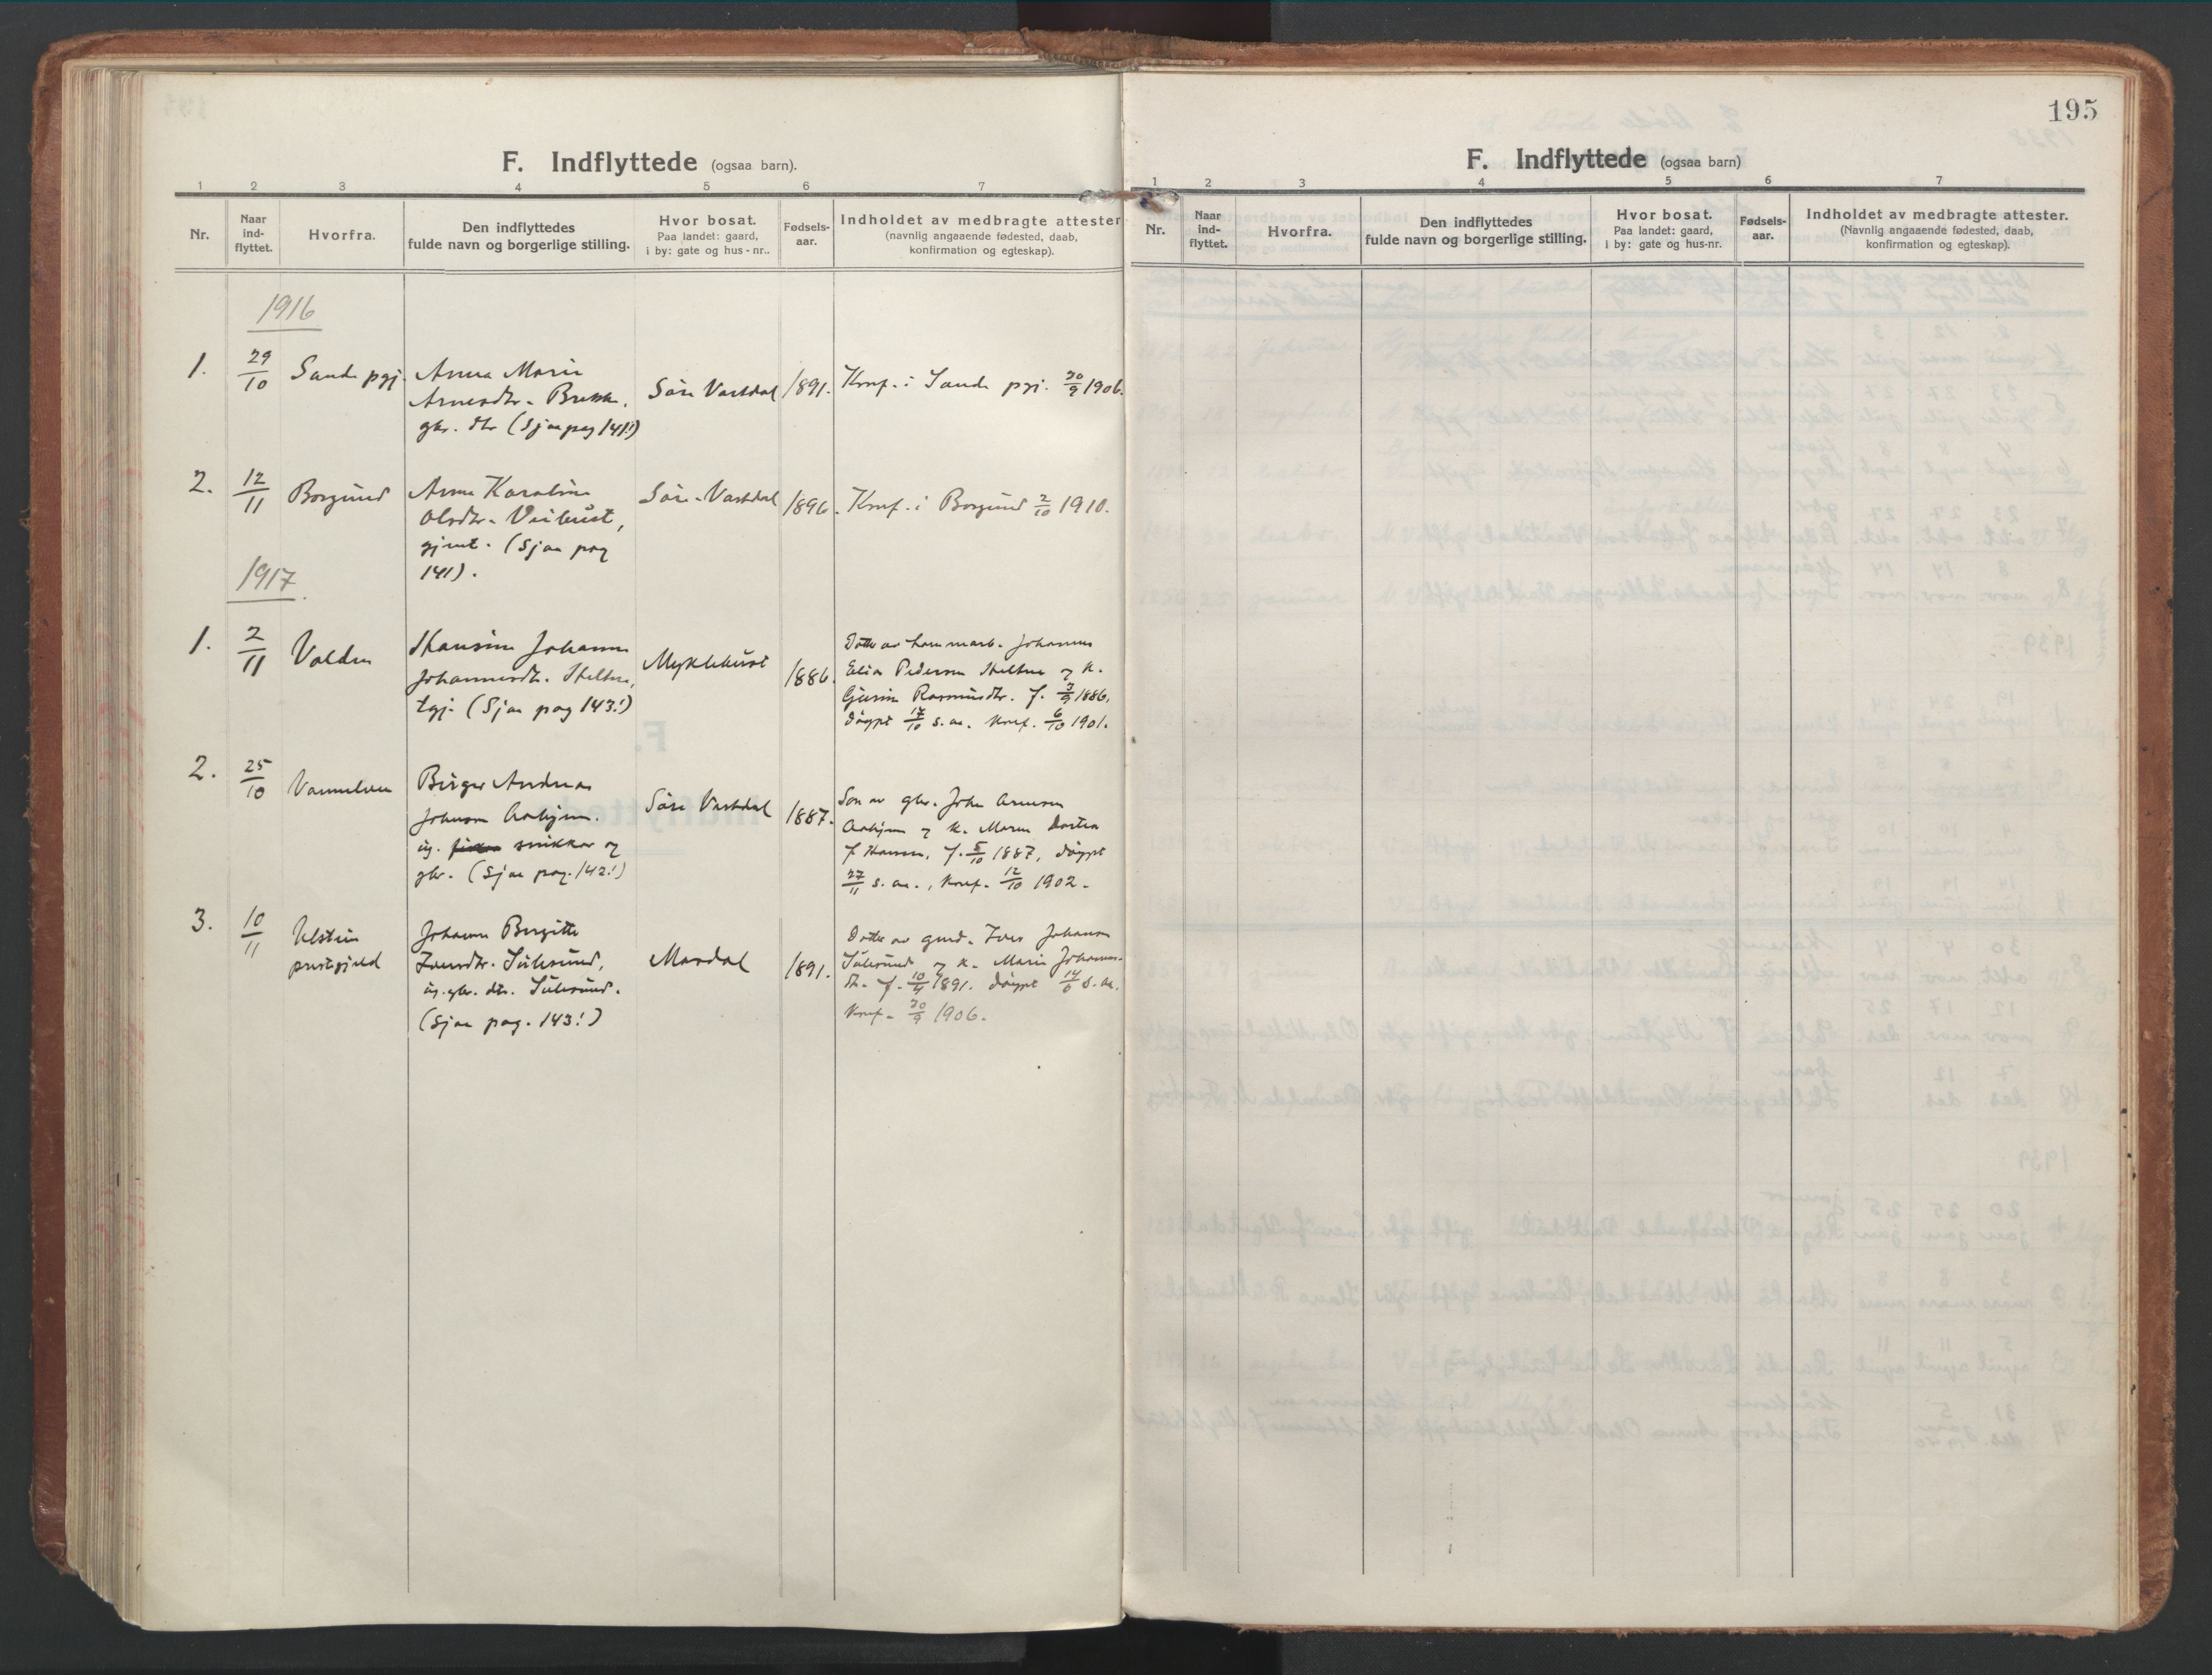 F. Indflyttede (ogsaa barn).
1 2 3 4 5 6 7
Nr. Naar ind-flyttet. Hvorfra. Den indflyttedes fulde navn og borgerlige stilling. Hvor bosat. Paa landet: gaard, i by: gate og hus-nr.. Fødsels-aar. Indholdet av medbragte attester (navnlig angaaende fødested, daab, konfirmation og egteskap).
1916
1. 29/10 Sande pgj. Anna Marie
Arnesdtr. Brekke.
gbr. dtr (Sjaa pag 141!)
Søre Vartdal 1891. Konf. i Sande pgj. 30/9 1906.
2. 12/11 Borgund Anna Karoline
Olsdtr. Veibust,
gjent. (Sjaa pag
141).
Søre-Vartdal 1896. Konf. i Borgund 2/10 1910.
1917
1. 2/11 Volden Hansine Johanne
Johannesdtr. Heltne,
tgj. (Sjaa pag 143!)
Myklebust 1886.
Dotter av Johannes
Elias Pedersen Heltne og k.
Gjurine Rasmusdtr. f. 3/9 1886,
døypt 17/10 s. aa. Konf. 6/10 1901.
2. 25/10 Vannelven Birger Andreas
Johnsen Aahjem.
ug. snikkar og
gbr. (Sjaa pag. 142!)
Søre Vartdal 1887.
Son av gbr. John Arnesen
Aahjem og k. Maren Dortea
f. Hansen, f. 5/10 1887, døypt
27/11 s. aa., Konf. 12/10 1902.
3. 10/11 Ulstein
prestgjeld
Johanne Bergitte
Iversdtr. Sulesund,
ug. gbr. dtr. Sulesund.
(Sjaa pag. 143!)
Mardal 1891.
Dotter av gmd. Iver Johansen
Sulesund og k. Marie Johannes-
dtr. f. 10/4 1891. døypt 14/6 s. aa.
Konf. 30/9 1906.
195
F. Indflyttede (ogsaa barn)
1 2 3 4 5 6 7
Nr. Naar ind-flyttet. Hvorfra. Den indflyttedes fulde navn og borgerlige stilling. Hvor bosat. Paa landet: gaard, i by: gate og hus-nr. Fødsels-aar. Indholdet av medbragte attester. (Navnlig angaaende fødested, daab, konfirmation og egteskap).